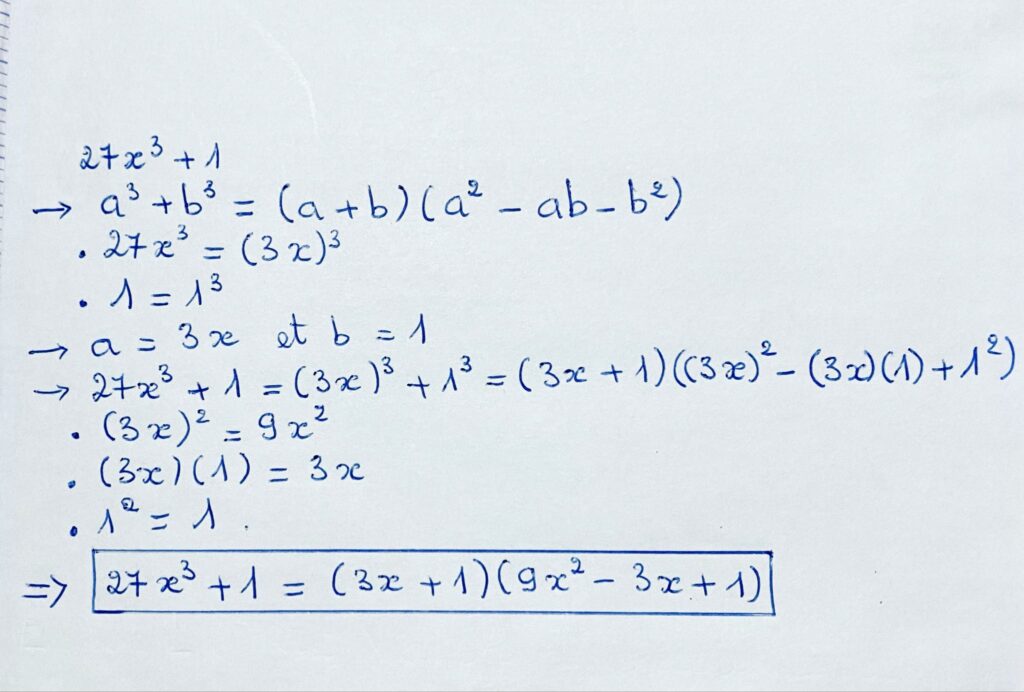 27x³ + 1
→ a³ + b³ = (a + b)(a² - ab - b²)
. 27x³ = (3x)³
. 1 = 1³
→ a = 3x et b = 1
→ 27x³ + 1 = (3x)³ + 1³ = (3x + 1)((3x)² - (3x)(1) + 1²)
. (3x)² = 9x²
. (3x)(1) = 3x
. 1² = 1 .
=> 27x³ + 1 = (3x + 1)(9x² - 3x + 1)